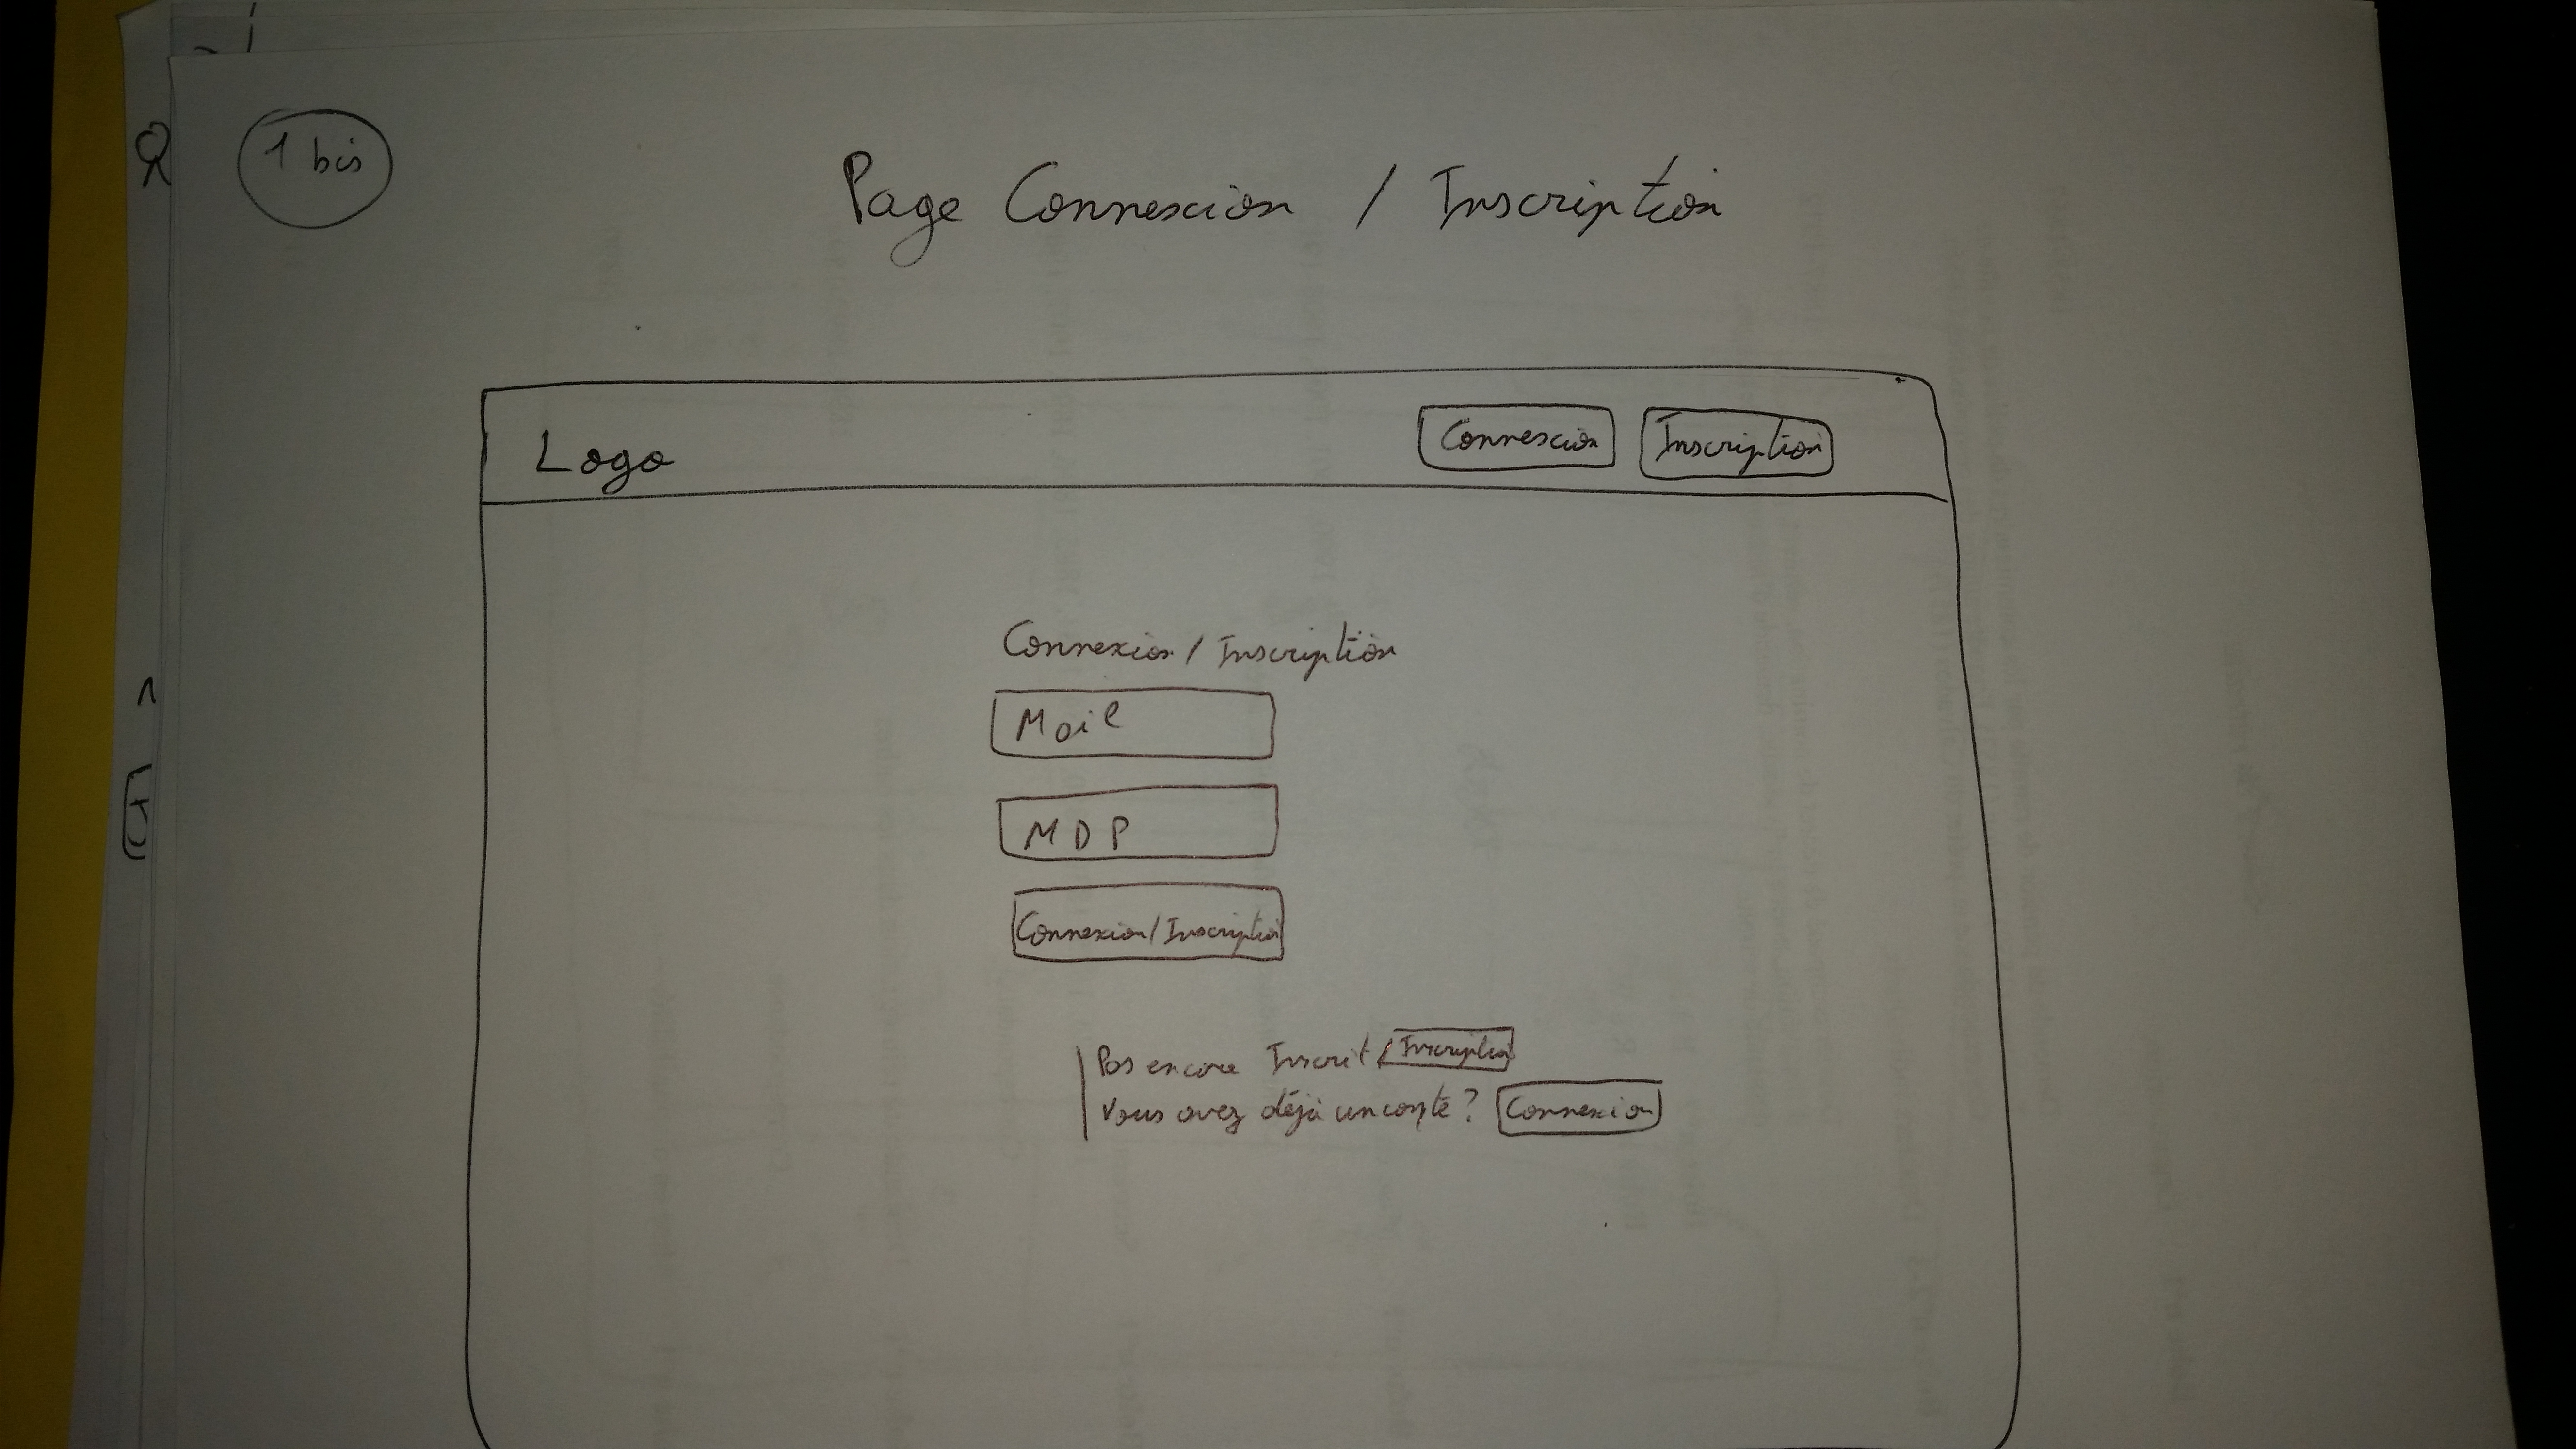 1 bis
Page Connexion / Inscription
Logo
Connexion
Inscription
Connexion / Inscription
Mail
MDP
Connexion / Inscription
Pas encore Inscrit / Inscription
Vous avez déjà un compte ? Connexion